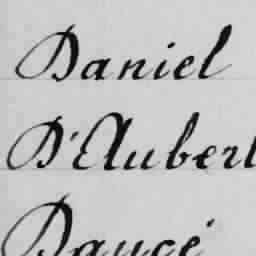 Daniel
D'Aubert
Daucé